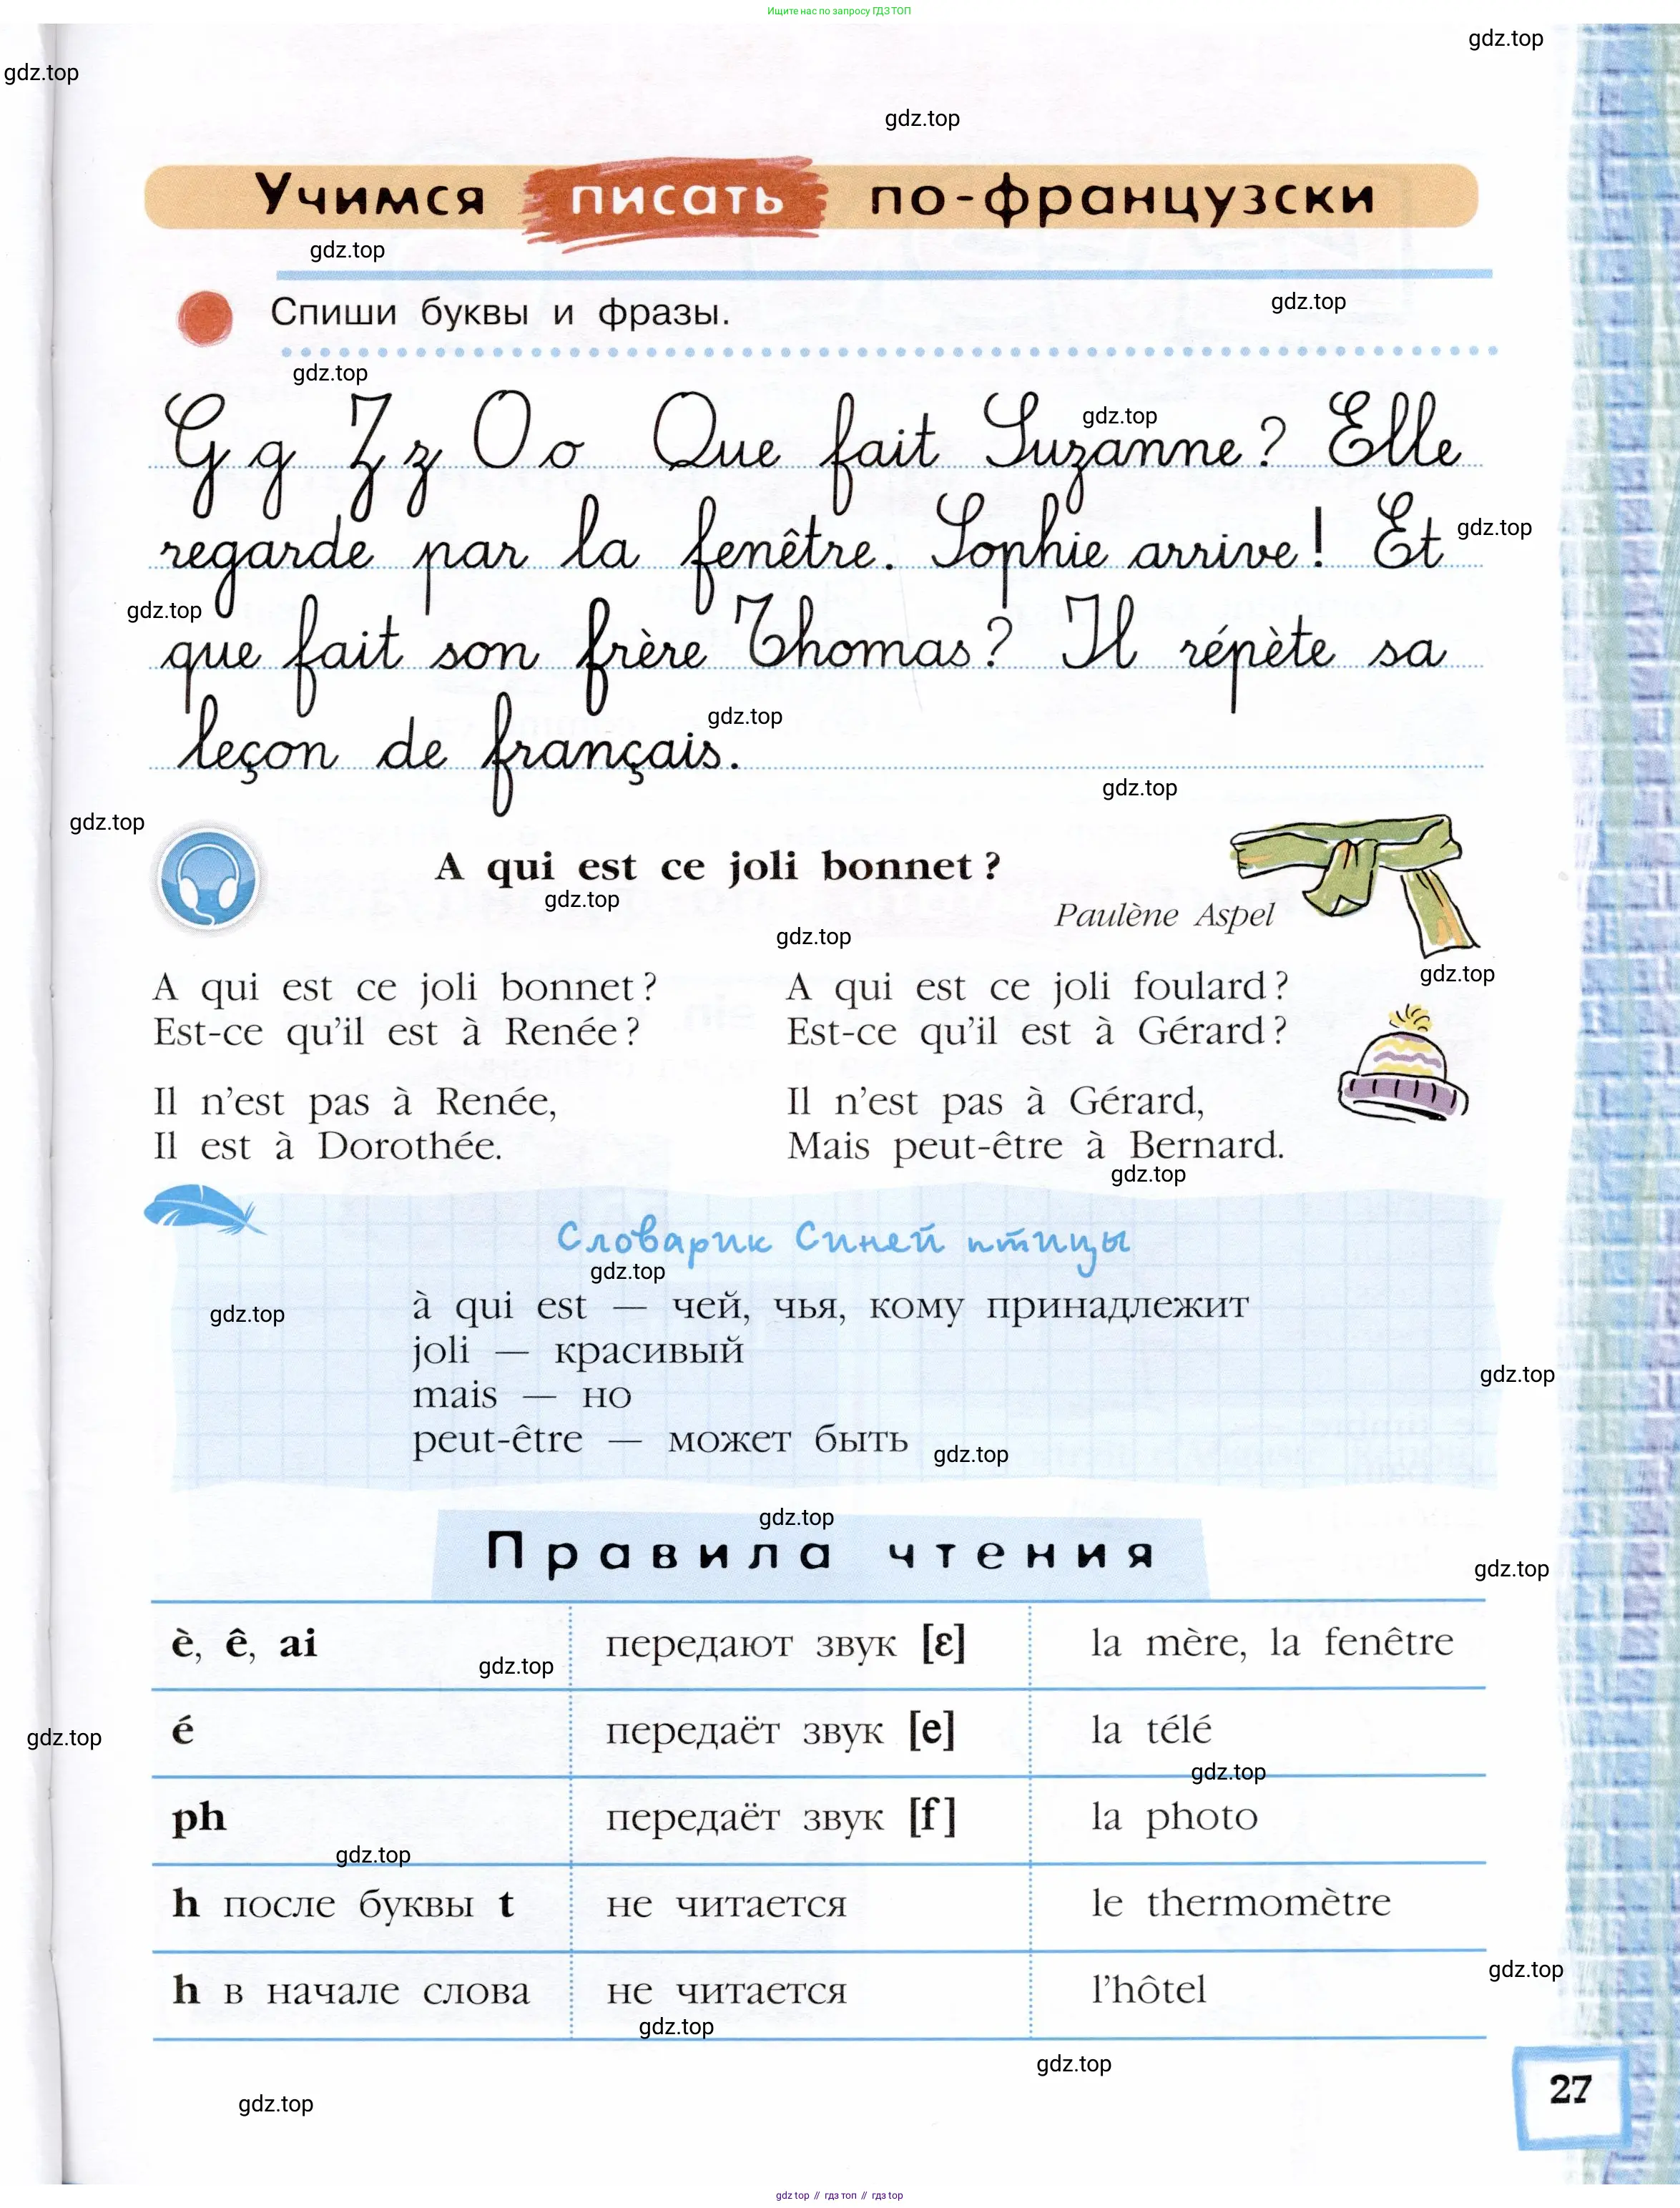 Ищите нас по запросу ГДЗ ТОП
gdz.top
gdz.top
gdz.top
Учимся писать по-французски
gdz.top
Спиши буквы и фразы.
gdz.top
gdz.top
gdz.top
G g Z z O o Que fait Suzanne ? Elle
regarde par la fenêtre. Sophie arrive ! Et
gdz.top
gdz.top
que fait son frère Thomas ? Il répète sa
leçon de français.
gdz.top
gdz.top
gdz.top
A qui est ce joli bonnet ?
gdz.top
Paulène Aspel
gdz.top
gdz.top
A qui est ce joli bonnet ?
Est-ce qu'il est à Renée ?
Il n'est pas à Renée,
Il est à Dorothée.
A qui est ce joli foulard ?
Est-ce qu'il est à Gérard ?
Il n'est pas à Gérard,
Mais peut-être à Bernard.
gdz.top
Словарик Синей птицы
gdz.top
gdz.top
à qui est — чей, чья, кому принадлежит
joli — красивый
gdz.top
mais — но
peut-être — может быть
gdz.top
gdz.top
Правила чтения
gdz.top
è, ê, ai передают звук [ɛ] la mère, la fenêtre
gdz.top
é передаёт звук [e] la télé
gdz.top
gdz.top
ph передаёт звук [f] la photo
gdz.top
h после буквы t не читается le thermomètre
gdz.top
h в начале слова не читается l'hôtel
gdz.top
gdz.top
27
gdz.top
gdz top // гдз топ // гдз top